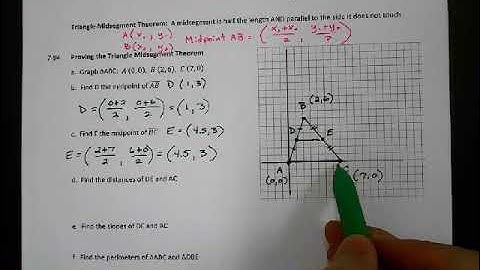 Triangle Midsegment Theorem: A midsegment is half the length AND parallel to the side it does not touch
A(x₁, y₁)
B(x₂, y₂)
Midpoint AB = (x₁+x₂/2, y₁+y₂/2)
7.94 Proving the Triangle Midsegment Theorem
a. Graph ΔABC: A (0,0), B (2,6), C (7,0)
b. Find D the midpoint of AB D (1,3)
D = (0+2/2, 0+6/2) = (1,3)
c. Find E the midpoint of BC E = (4.5, 3)
E = (2+7/2, 6+0/2) = (4.5, 3)
d. Find the distances of DE and AC
e. Find the slopes of DE and AC
f. Find the perimeters of ΔABC and ΔDBE
B (2,6)
D
E
A
(0,0)
(7,0)